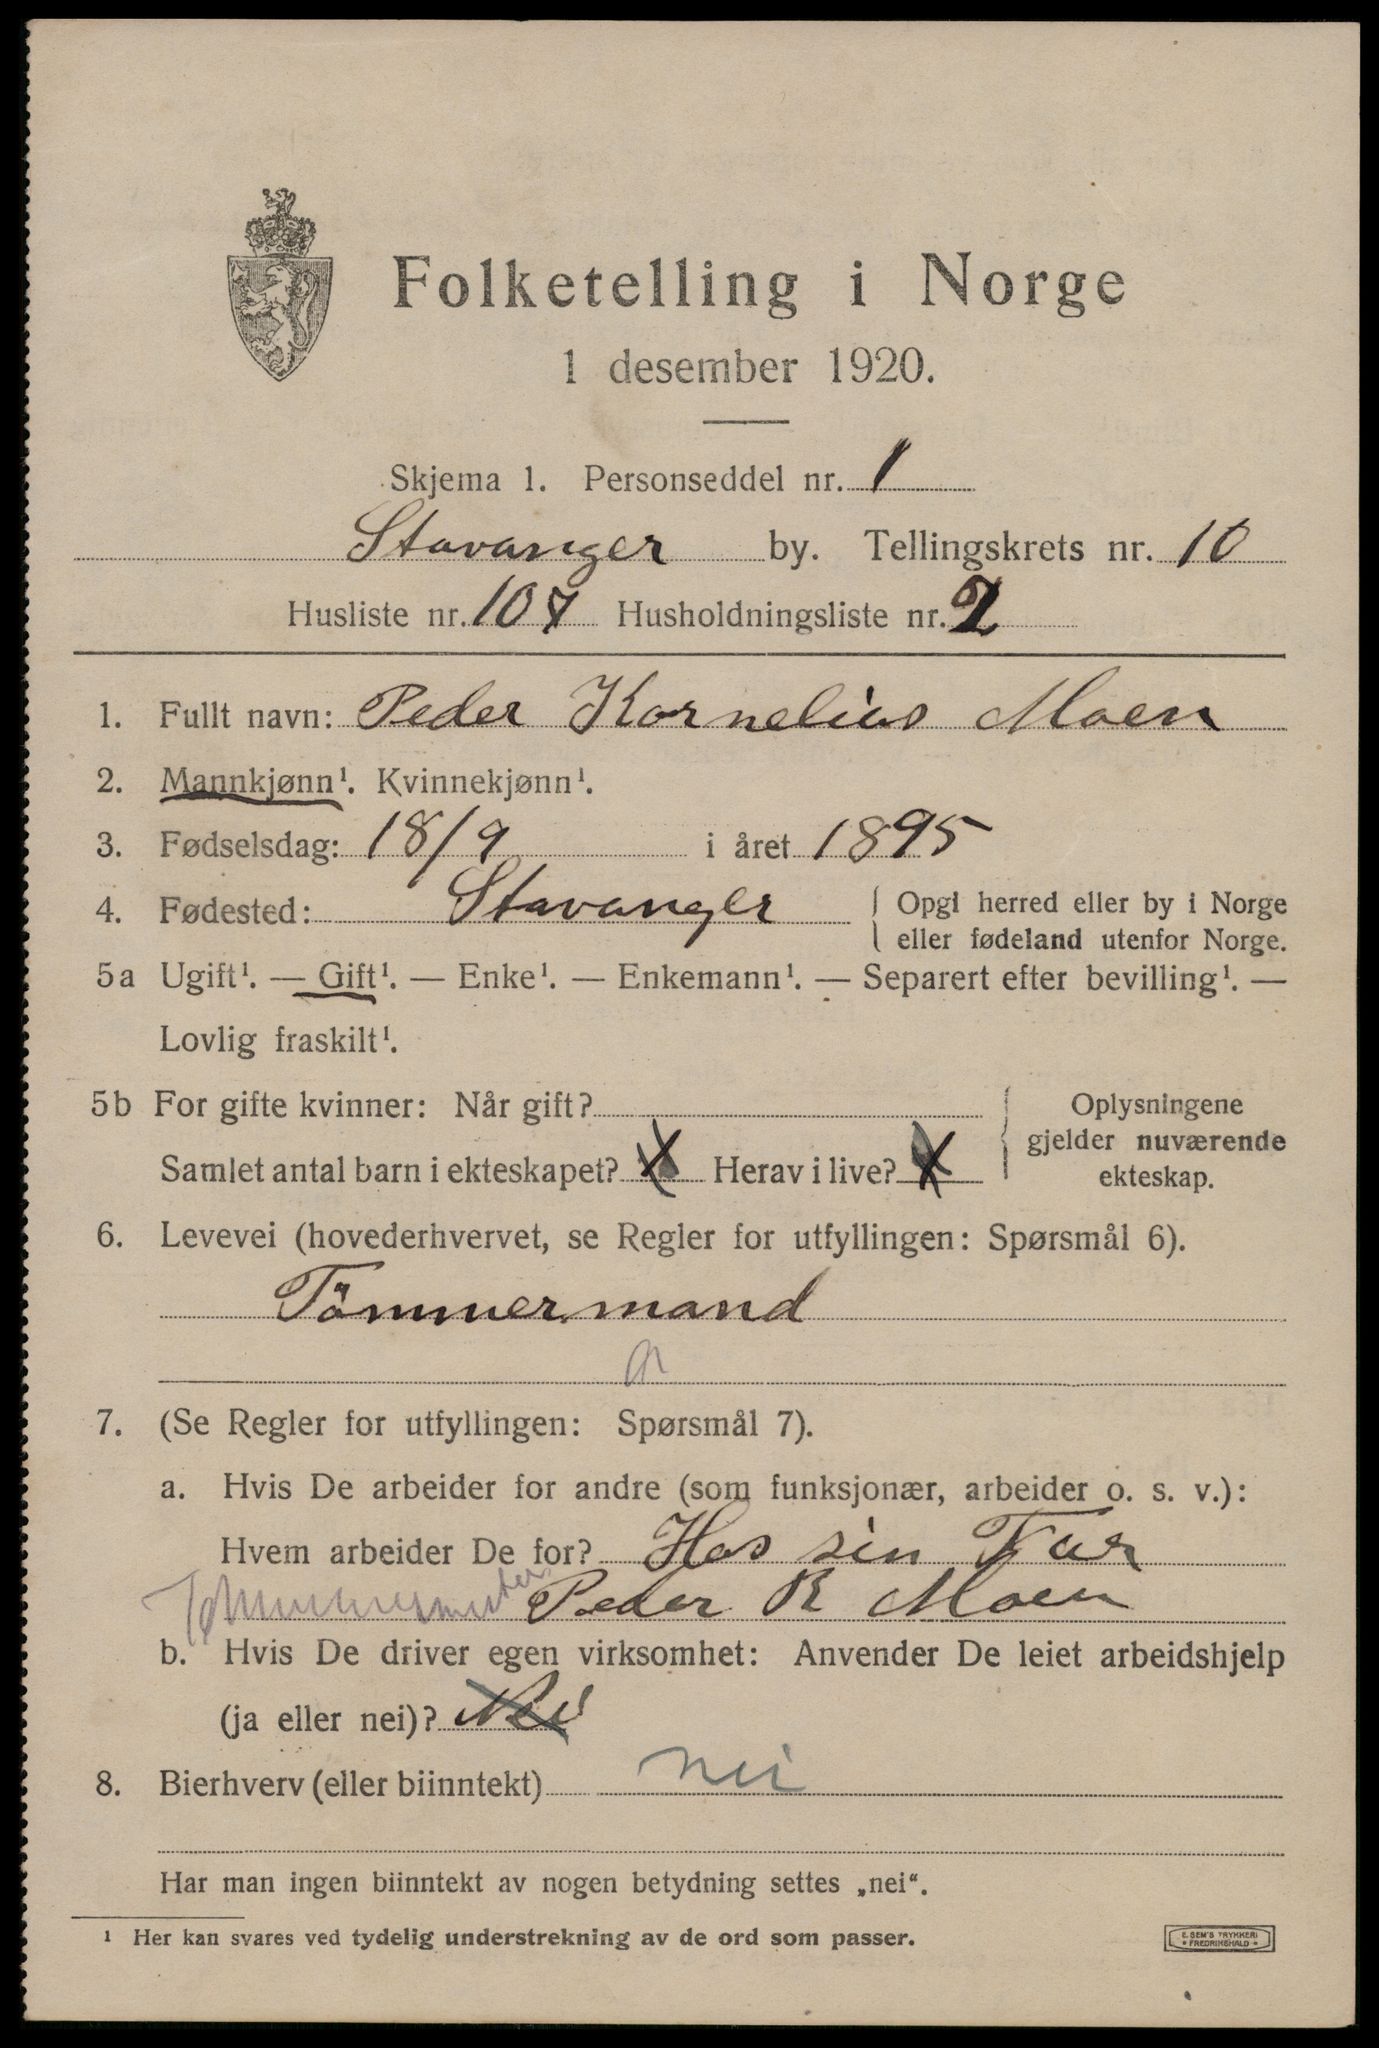 Folketelling i Norge
1 desember 1920.
Skjema 1. Personseddel nr. 1
Stavanger by. Tellingskrets nr. 10
Husliste nr. 107 Husholdningsliste nr. 2
1. Fullt navn: Peder Kornelius Moen
2. Mannkjønn¹. Kvinnekjønn¹.
3. Fødselsdag: 18/9 i året 1895
4. Fødested: Stavanger { Opgi herred eller by i Norge
eller fødeland utenfor Norge.
5a Ugift¹. — Gift¹. — Enke¹. — Enkemann¹. — Separert efter bevilling¹. —
Lovlig fraskilt¹.
5b For gifte kvinner: Når gift? { Oplysningene
gjelder nuværende
Samlet antal barn i ekteskapet? X Herav i live? X
ekteskap.
6. Levevei (hovederhvervet, se Regler for utfyllingen: Spørsmål 6).
Tömmermand
a
7. (Se Regler for utfyllingen: Spørsmål 7).
a. Hvis De arbeider for andre (som funksjonær, arbeider o. s. v.):
Hvem arbeider De for? Hos sin Far
Tømmermester Peder R Moen
b. Hvis De driver egen virksomhet: Anvender De leiet arbeidshjelp
(ja eller nei)? Nei
8. Bierhverv (eller biinntekt) nei
Har man ingen biinntekt av nogen betydning settes „nei“.
¹ Her kan svares ved tydelig understrekning av de ord som passer.
E. SEM'S TRYKKERI
FREDRIKSHALD